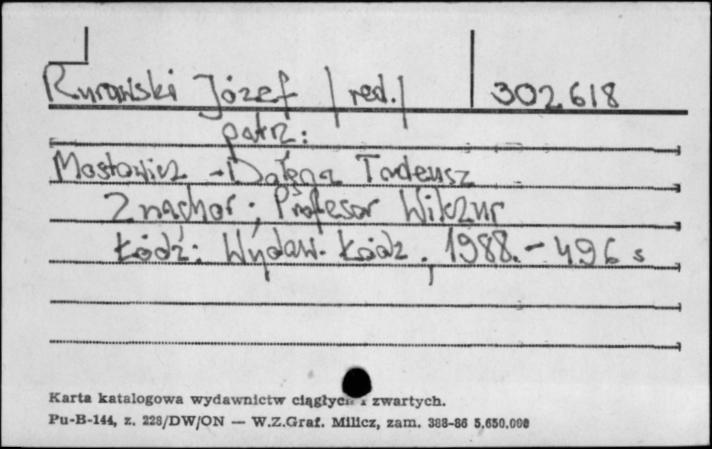 Rurawski Józef /red./ 302618
patrz:
Mostowicz - Dołęga Tadeusz
Znachor; Profesor Wilczur
Łódź: Wydaw. Łódz., 1988. - 496 s
Karta katalogowa wydawnictw ciągłych i zwartych.
Pu-B-144, z. 228/DW/ON — W.Z.Graf. Milicz, zam. 388-86 5,650.000